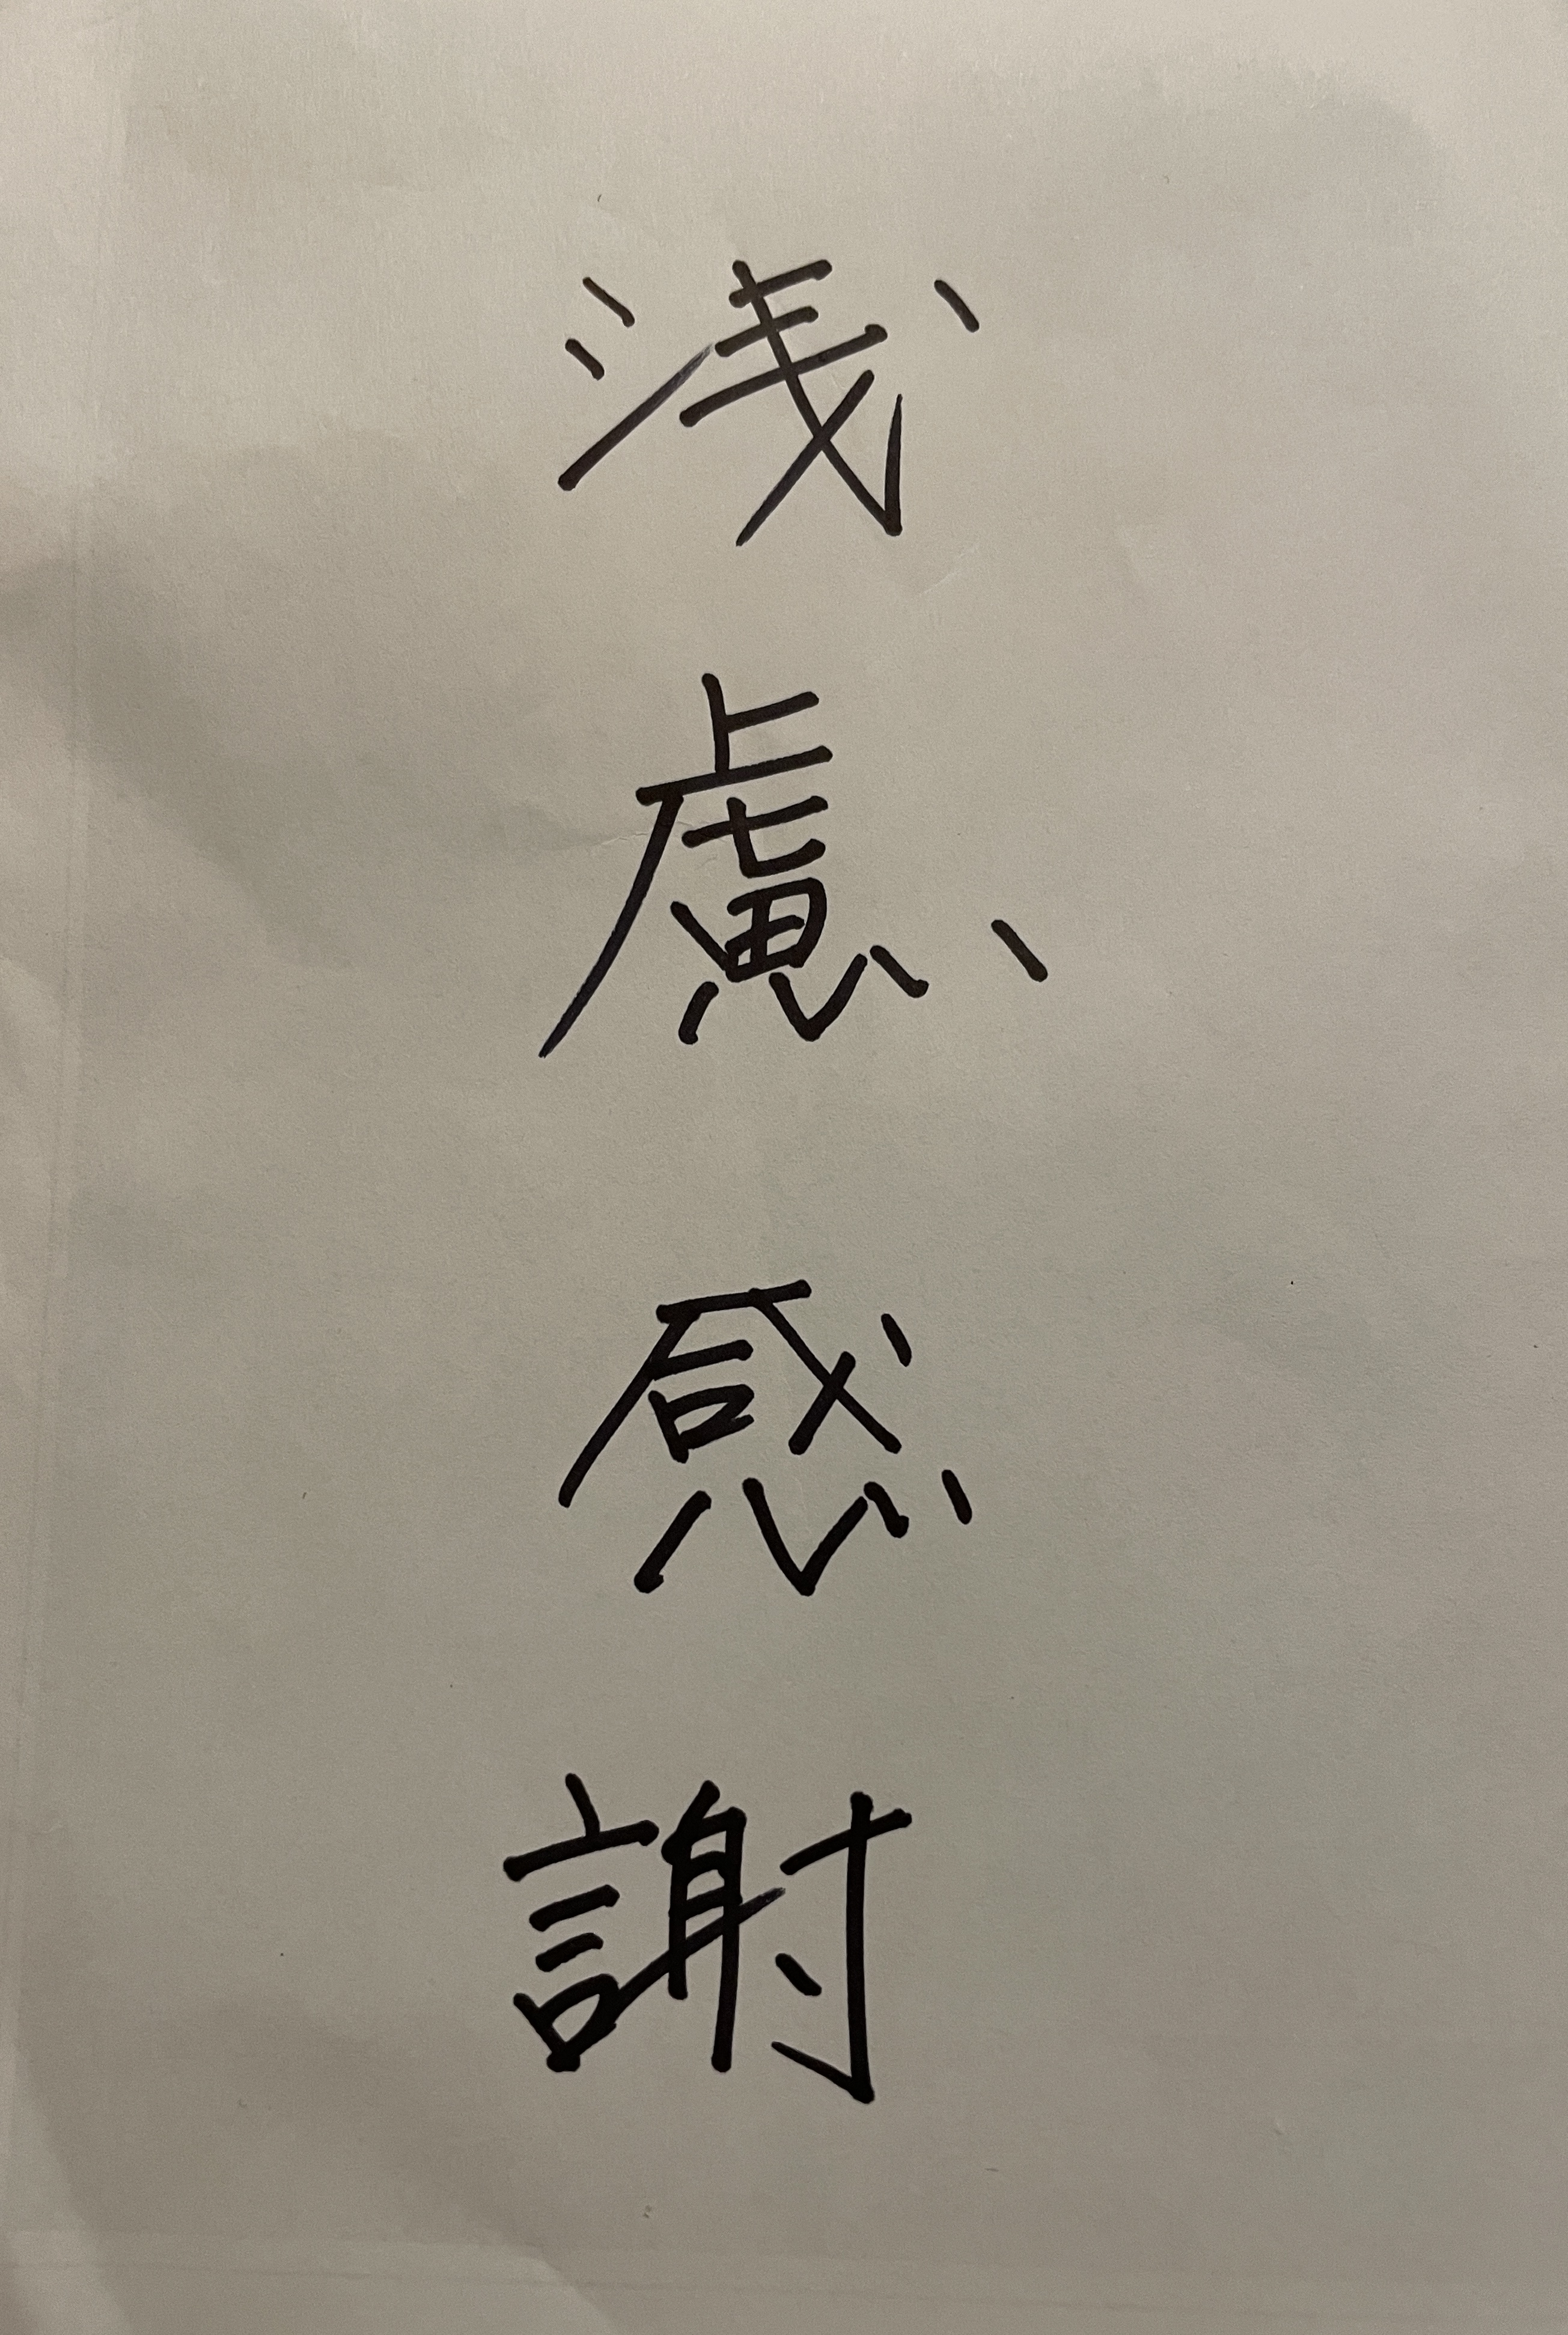 浅慮感謝